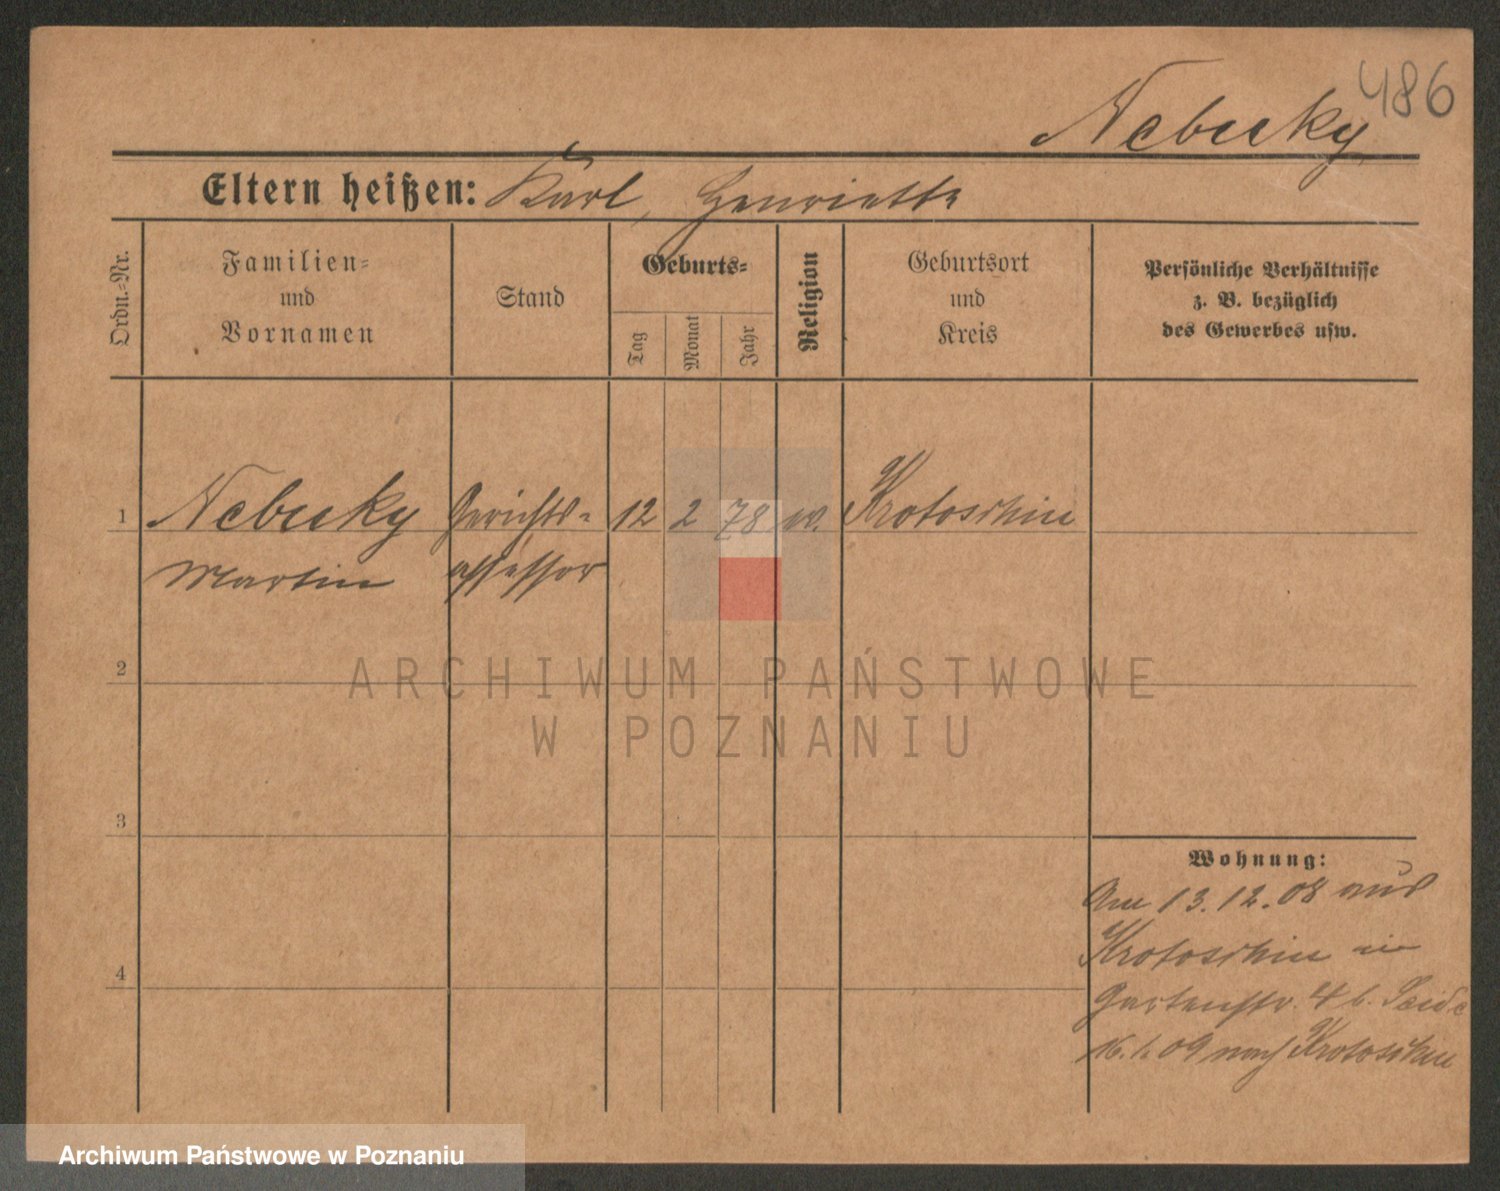 486
Nebesky
Eltern heißen: Karl, Henriette
Ordn.-Nr.
Familien-
und
Vornamen
Stand
Geburts-
Tag
Monat
Jahr
Religion
Geburtsort
und
Kreis
Persönliche Verhältnisse
z. B. bezüglich
des Gewerbes usw.
1 Nebesky Gerichts- 12 2 78 Krotoschin
Martin assessor
2
3
4
Wohnung:
Am 13.12.08 aus
Krotoschin in
Gartenstr. 4 b.
16.1.09 nach Krotoschin
ARCHIWUM PAŃSTWOWE
W POZNANIU
Archiwum Państwowe w Poznaniu